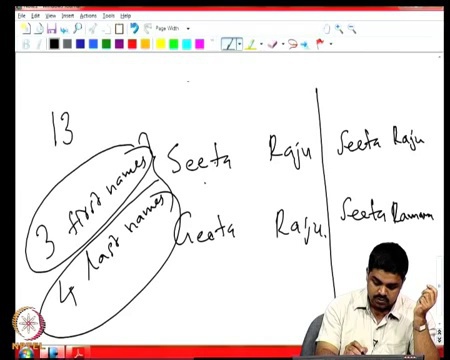 File Edit View Insert Actions Tools Help
Page Width
13
3 first names
4 last names
Seeta Raju
Geeta Raju.
Seeta Raju
Seeta Ramana